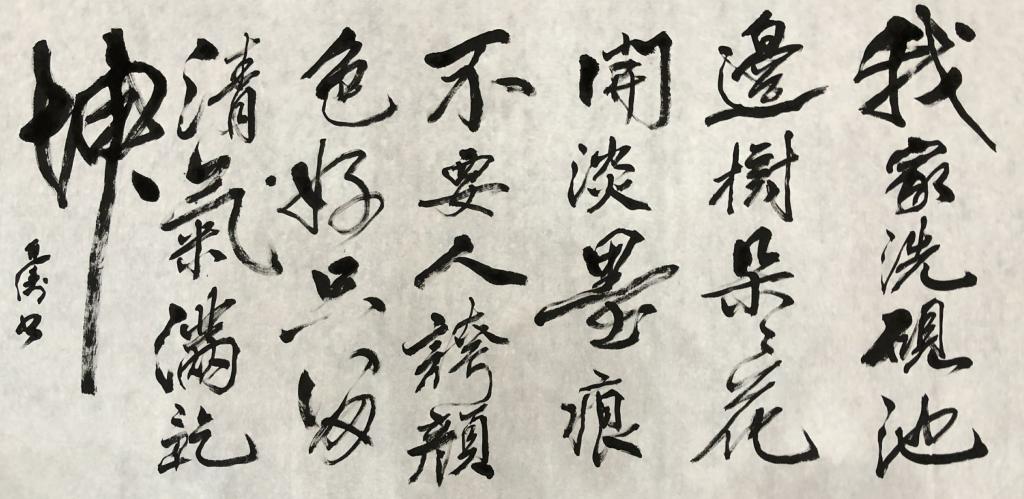 我家洗硯池
邊樹朵〻花
開淡墨痕
不要人誇顏
色好只留
清氣滿乾
坤